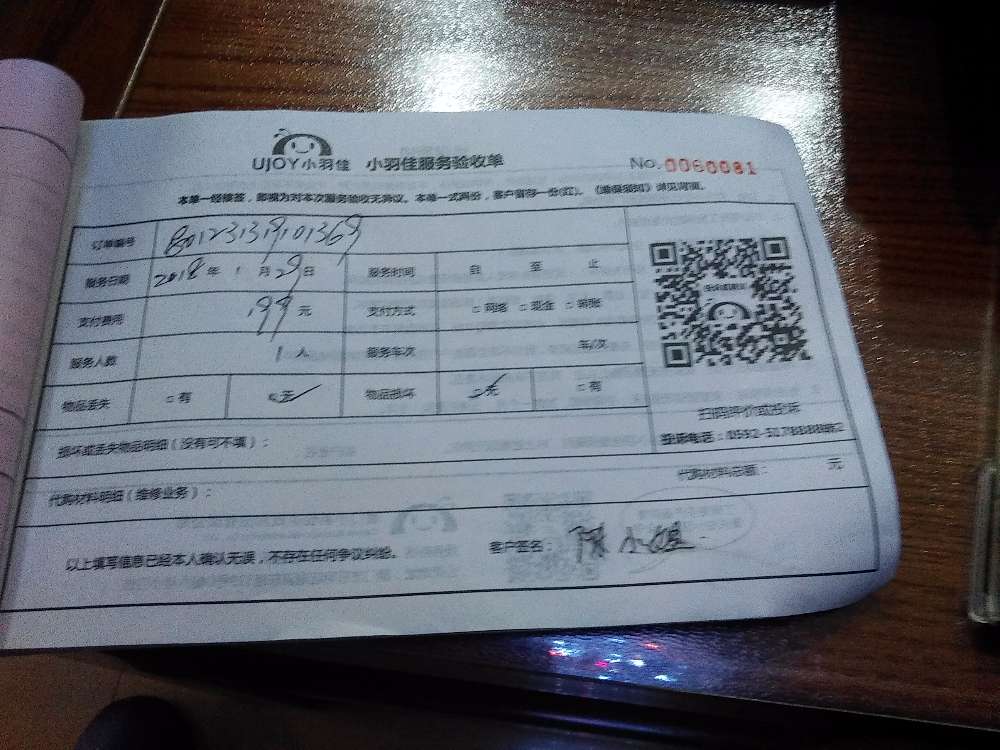 UJOY小羽佳 小羽佳服务验收单 No.0060081
本单一经接签，即视为对本次服务验收无异议。本单一式两份，客户留存一份(红)。《维保须知》详见背面。
订单编号 801231319101369
服务日期 2018年1月29日 服务时间 自 至 止
支付费用 199元 支付方式 □网络 □现金 □转账
服务人数 1人 服务车次 车/次
物品丢失 □有 □无✓ 物品损坏 □无✓ □有
扫码评价或投诉
损坏或丢失物品明细（没有可不填）：
投诉电话：0592-5178888转2
代购材料明细（维修业务）： 代购材料总额： 元
以上填写信息已经本人确认无误，不存在任何争议纠纷。 客户签名： 陈小姐